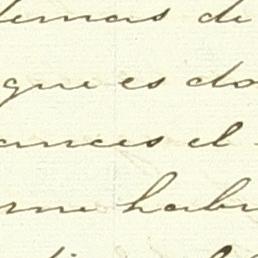 demas de
que es do
ances el
me habr